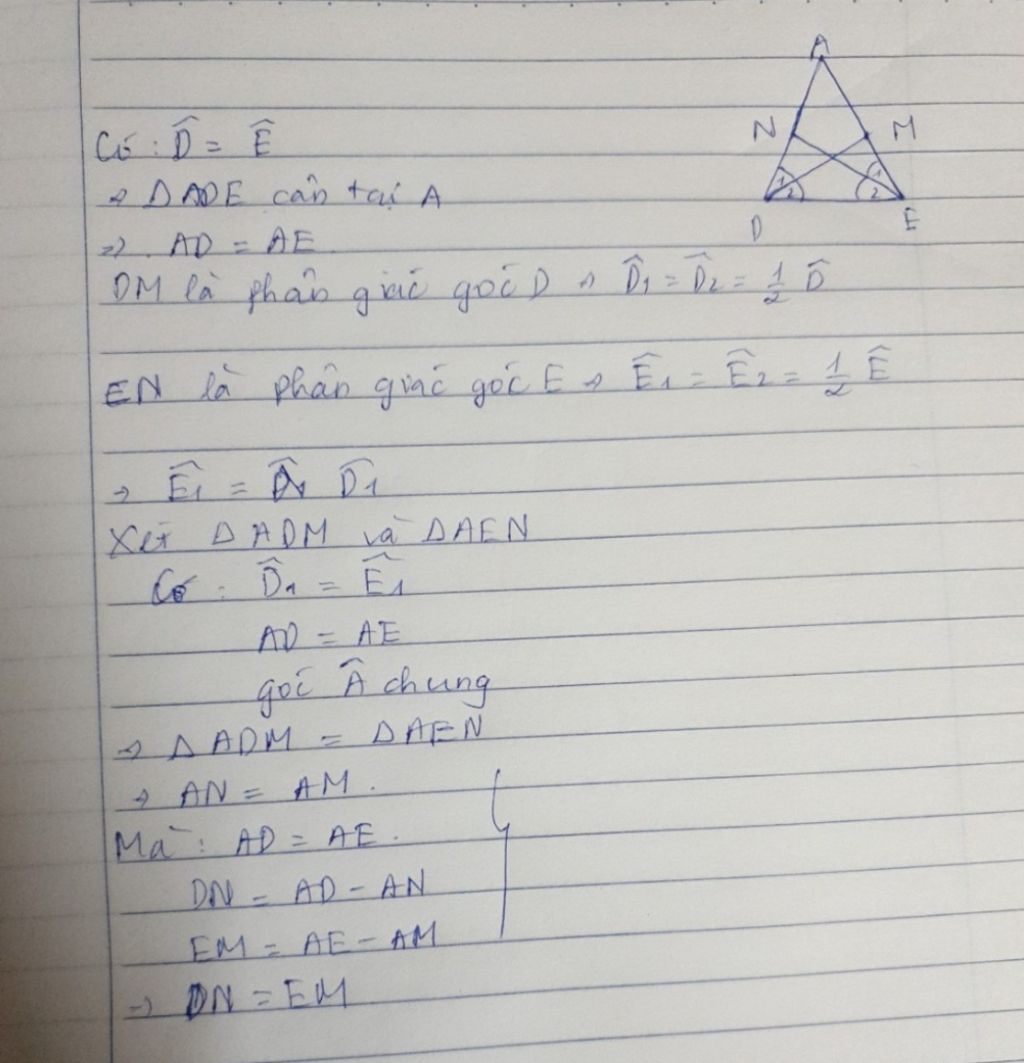 A
N M
1 2 1 2
D E
Có : D̂ = Ê
⇒ ΔADE cân tại A
⇒ AD = AE
DM là phân giác góc D ⇒ D̂1 = D̂2 = 1/2 D̂
EN là phân giác góc E ⇒ Ê1 = Ê2 = 1/2 Ê
⇒ Ê1 = D̂1
Xét ΔADM và ΔAEN
Có : D̂1 = Ê1
AD = AE
góc Â chung
⇒ ΔADM = ΔAEN
⇒ AN = AM.
Mà : AD = AE.
DN = AD - AN
EM = AE - AM
⇒ DN = EM